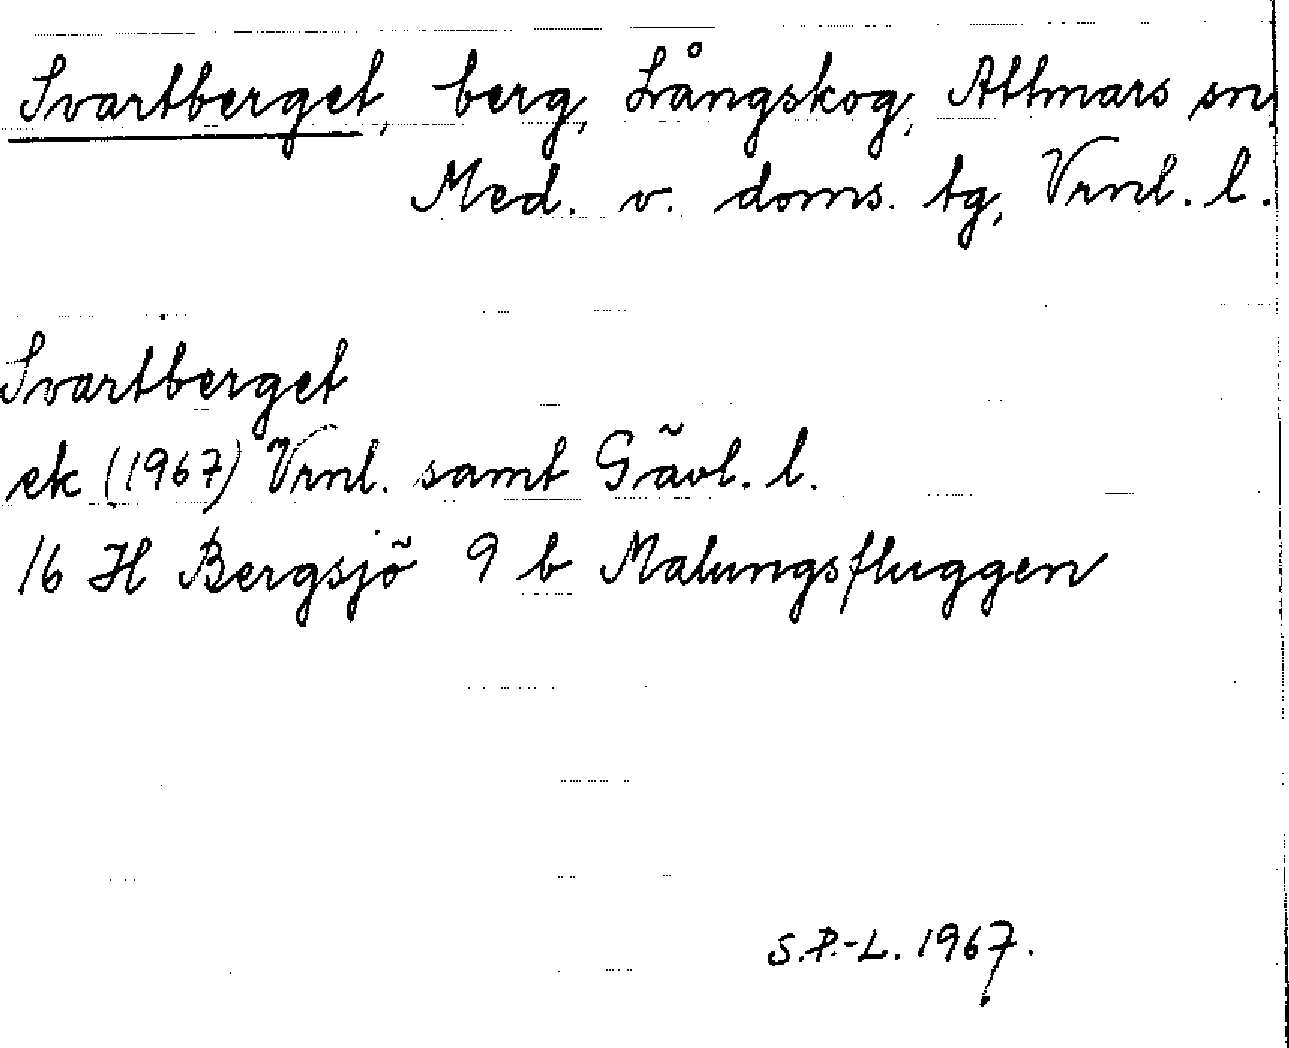 Svartberget, berg, Långskog, Attmars sn,
Med. v. doms. tg, Vrnl. l.
Svartberget
ek (1967) Vrnl. samt Gävl. l.
16 H Bergsjö 9 b Malungsfluggen
S.P.-L. 1967.